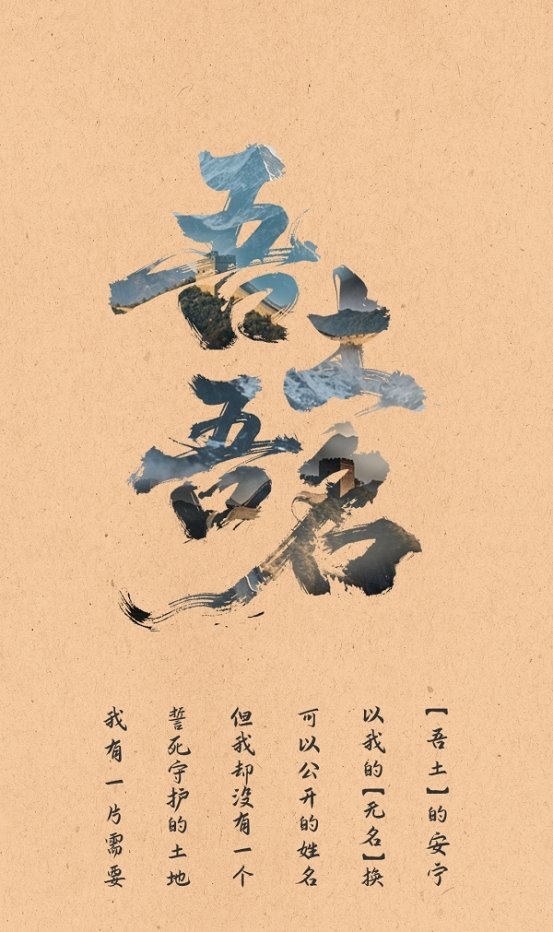 吾土
吾名
我有一片需要
誓死守护的土地
但我却没有一个
可以公开的姓名
以我的【无名】换
【吾土】的安宁